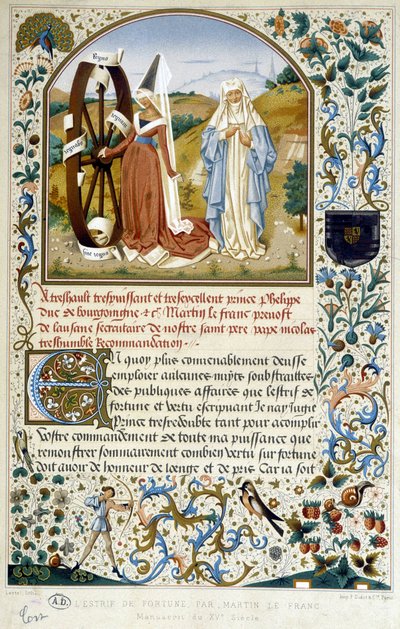 Regno
regnavi
regnabo
sine regno
A treshault trespuissant et tresexcellent prince Phelippe
Duc de bourgoingne & cs Martin le franc prevost
de lausane secretaire de nostre saint pere pape nicolas
treshumble Recommandation.
En quoy plus convenablement deusse
emploier aulcunes nuyts soubstraittes
des publiques affaires que lestrif de
fortune et vertu escripvant Je nay Jugie
Prince tresredoubte tant pour acomplir
Vostre commandement de toute ma puissance que
remonstrer sommairement combien vertu sur fortune
doit avoir de honneur de loenge et de pris Car ia soit
A.D.
L'ESTRIF DE FORTUNE, PAR MARTIN LE FRANC
Manuscrit du XVe Siècle